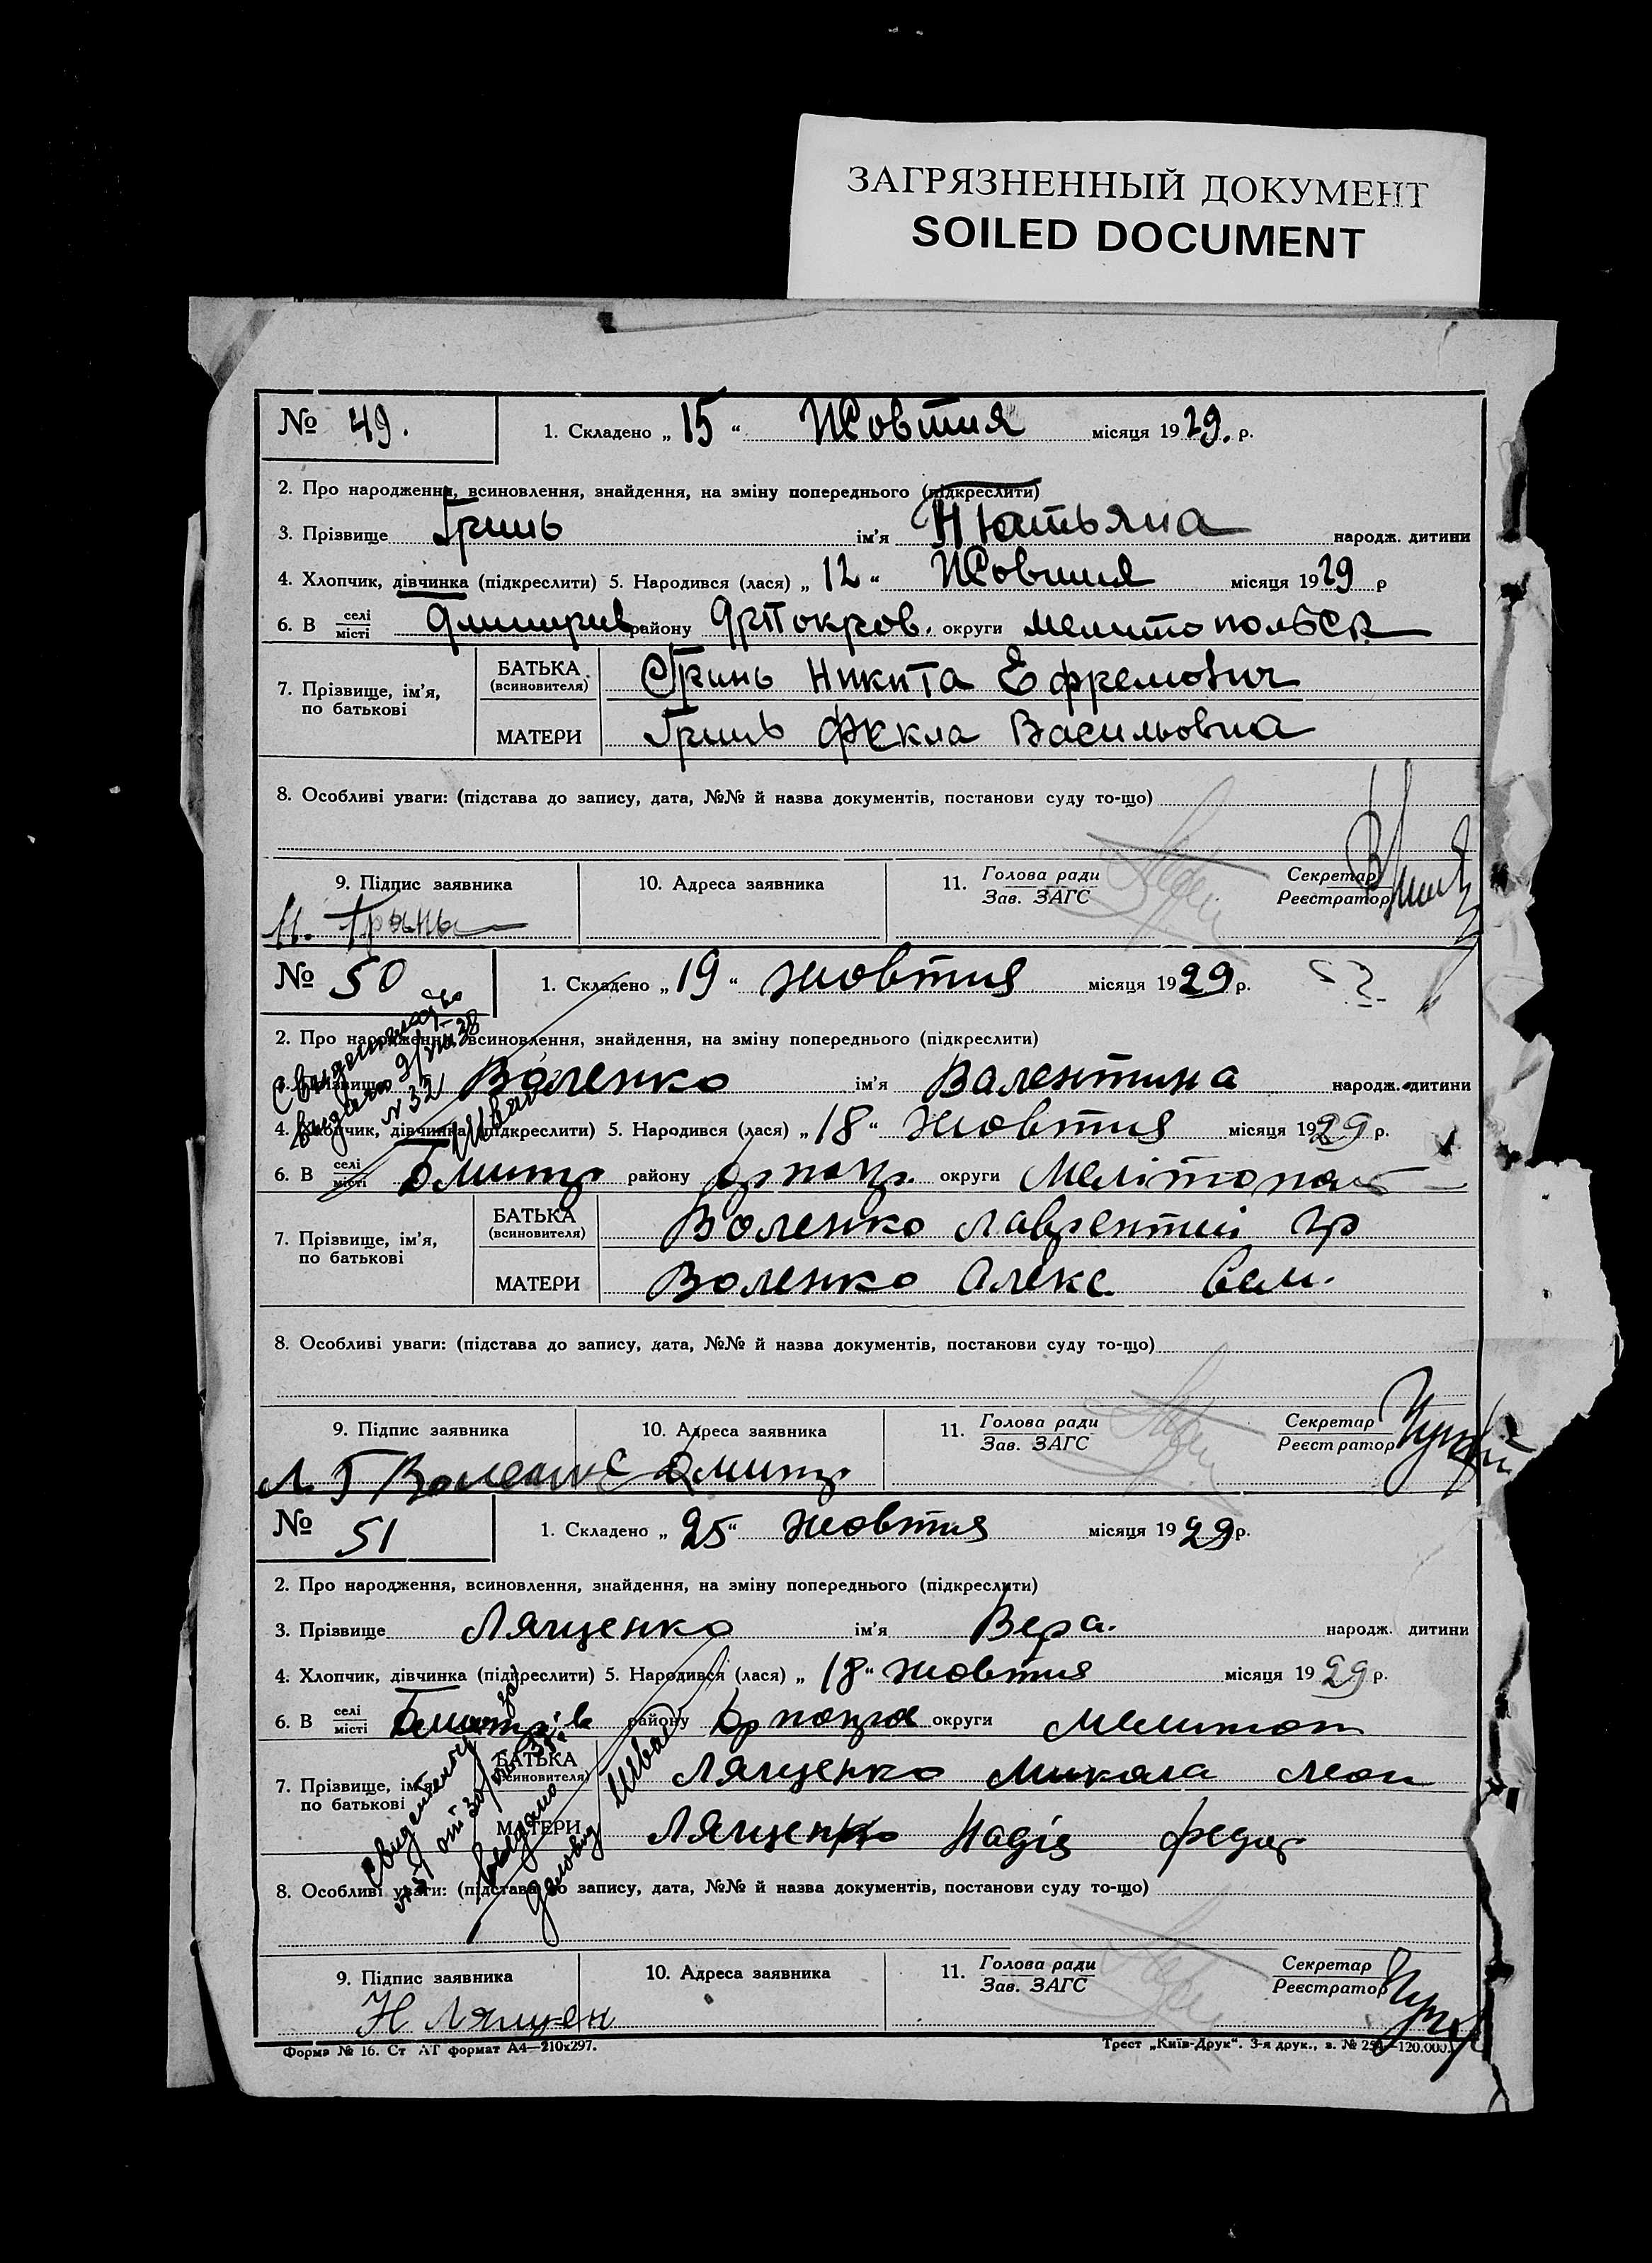 ЗАГРЯЗНЕННЫЙ ДОКУМЕНТ
SOILED DOCUMENT
№ 49. 1. Складено „ 15 “ Жовтня місяця 1929. р.
2. Про народження, всиновлення, знайдення, на зміну попереднього (підкреслити)
3. Прізвище Гринь ім'я Тятьяна народж. дитини
4. Хлопчик, дівчинка (підкреслити) 5. Народився (лася) „ 12 “ Жовтня місяця 1929 р
6. В селі місті Дмитрив. району округи Мелитопольск
7. Прізвище, ім'я, по батькові
БАТЬКА (всиновителя) Гринь Никита Ефремович
МАТЕРИ Гринь Фекла Васильовна
8. Особливі уваги: (підстава до запису, дата, №№ й назва документів, постанови суду то-що)
9. Підпис заявника 10. Адреса заявника 11. Голова ради Зав. ЗАГС Секретар Реєстратор
Н. Грынь
№ 50 1. Складено „ 19 “ жовтня місяця 1929 р.
2. Про народження, всиновлення, знайдення, на зміну попереднього (підкреслити)
3. Прізвище Воленко ім'я Валентина народж. дитини
4. Хлопчик, дівчинка (підкреслити) 5. Народився (лася) „ 18 “ жовтня місяця 1929 р.
6. В селі місті Дмитр району округи Мелітопол
7. Прізвище, ім'я, по батькові
БАТЬКА (всиновителя) Воленко Лаврентий Гр
МАТЕРИ Воленко Алекс Сем.
8. Особливі уваги: (підстава до запису, дата, №№ й назва документів, постанови суду то-що)
9. Підпис заявника 10. Адреса заявника 11. Голова ради Зав. ЗАГС Секретар Реєстратор
Л Г Воленко Дмитр
№ 51 1. Складено „ 25 “ жовтня місяця 1929 р.
2. Про народження, всиновлення, знайдення, на зміну попереднього (підкреслити)
3. Прізвище Лященко ім'я Вера. народж. дитини
4. Хлопчик, дівчинка (підкреслити) 5. Народився (лася) „ 18 “ жовтня місяця 1929 р.
6. В селі місті Дмитрів району округи Мелитоп
7. Прізвище, ім'я, по батькові
БАТЬКА (всиновителя) Лященко Микола Леон
МАТЕРИ Лященко Надія Федор
8. Особливі уваги: (підстава до запису, дата, №№ й назва документів, постанови суду то-що)
9. Підпис заявника 10. Адреса заявника 11. Голова ради Зав. ЗАГС Секретар Реєстратор
Н Лящен
Форма № 16. Ст АТ формат А4—210х297. Трест „Київ-Друк“. 3-я друк., з. № —120.000.